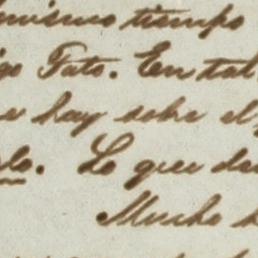 mismo tiempo
go Fato. En tal
hay sobre el
lo. Lo que de
Mucho